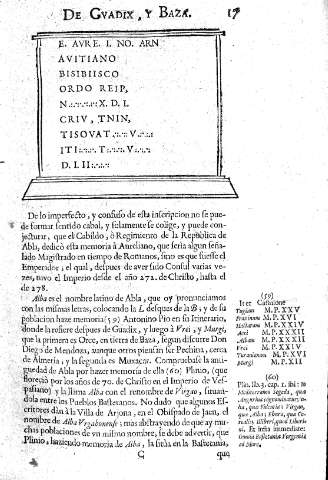 DE GVADIX, Y BAZA. 17
E. AVRE. I. NO. ARN
AVITIANO
BISIBIISCO
ORDO REIP,
N X. D. I.
CRIV, TNIN,
TISOVAT V
ITI T. V
D. I. II
De lo imperfecto, y confuso de esta inscripcion no se pue-
de formar sentido cabal, y solamente se colige, y puede con-
jecturar, que el Cabildo, ò Regimiento de la Republica de
Abla, dedicò esta memoria à Aureliano, que seria algun seña-
lado Magistrado en tiempo de Romanos, sino es que fuesse el
Emperador; el qual, despues de aver sido Consul varias ve-
zes, tuvo el Imperio desde el año 272. de Christo, hasta el
de 278.
Alba es el nombre latino de Abla, que oy pronunciamos
con las mismas letras, colocando la L despues de la B; y de su
poblacion haze memoria (59) Antonino Pio en su Itinerario,
donde la refiere despues de Guadix, y luego à Vrci, y Murgi,
que la primera es Orce, en tierra de Baza, segun discurre Don
Diego de Mendoza, aunque otros piensan ser Pechina, cerca
de Almeria, y la segunda es Muxacra. Compruebase la anti-
guedad de Abla por hazer memoria de ella (60) Plinio, (que
floreciò por los años de 70. de Christo en el Imperio de Ves-
pasiano) y la llama Alba con el renombre de Virgao, situan-
dola entre los Pueblos Bastetanos. No dudo que algunos Es-
critores dàn à la Villa de Arjona, en el Obispado de Jaen, el
nombre de Alba Vrgabonense; mas abstrayendo de que ay mu-
chas poblaciones de vn mismo nombre, se debe advertir, que
Plinio, haziendo memoria de Alba, la sitùa en la Bastetania,
G que
(59)
Iter Castulone
Tugiam M. P. XXV
Fraxinum M. P. XVI
Hactaram M. P. XXIV
Acci M. P. XXXII
Albam M. P. XXXII
Vrci M. P. XXIV
Turanianam M. P. XVI
Murgi M. P. XII
(60)
Plin. lib. 3. cap. 1. ibi: In
Mediterraneo Segeda, quæ